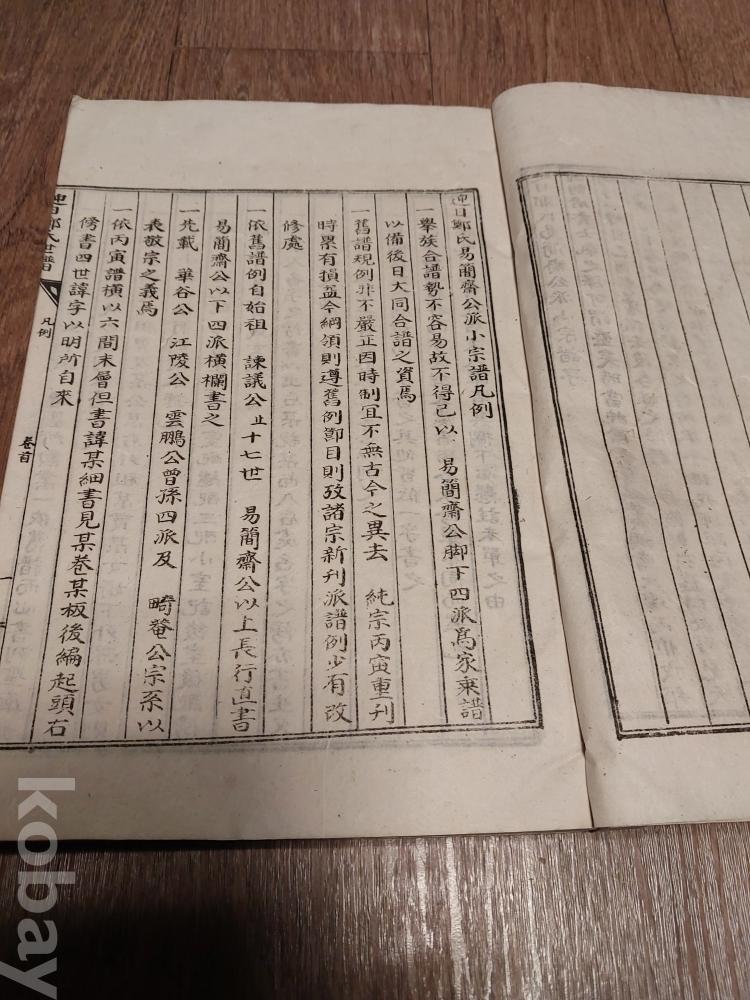 迎日鄭氏易簡齋公派小宗譜凡例
一擧族合譜勢不容易故不得已以　易簡齋公脚下四派爲家乘譜
以備後日大同合譜之資焉
一舊譜規例非不嚴正因時制宜不無古今之異去　純宗丙寅重刊
時果有損益今綱領則遵舊例節目則攷諸宗新刊派譜例少有改
修處
一依舊譜例自始祖　諫議公止十七世　易簡齋公以上長行直書
易簡齋公以下四派橫欄書之
一先載　華谷公　江陵公　雲鵬公曾孫四派及　畸菴公宗系以
表敬宗之義焉
一依丙寅譜橫以六間末層但書諱某細書見某卷某板後編起頭右
傍書四世諱字以明所自來
迎日鄭氏世譜
凡例
卷首
kobay